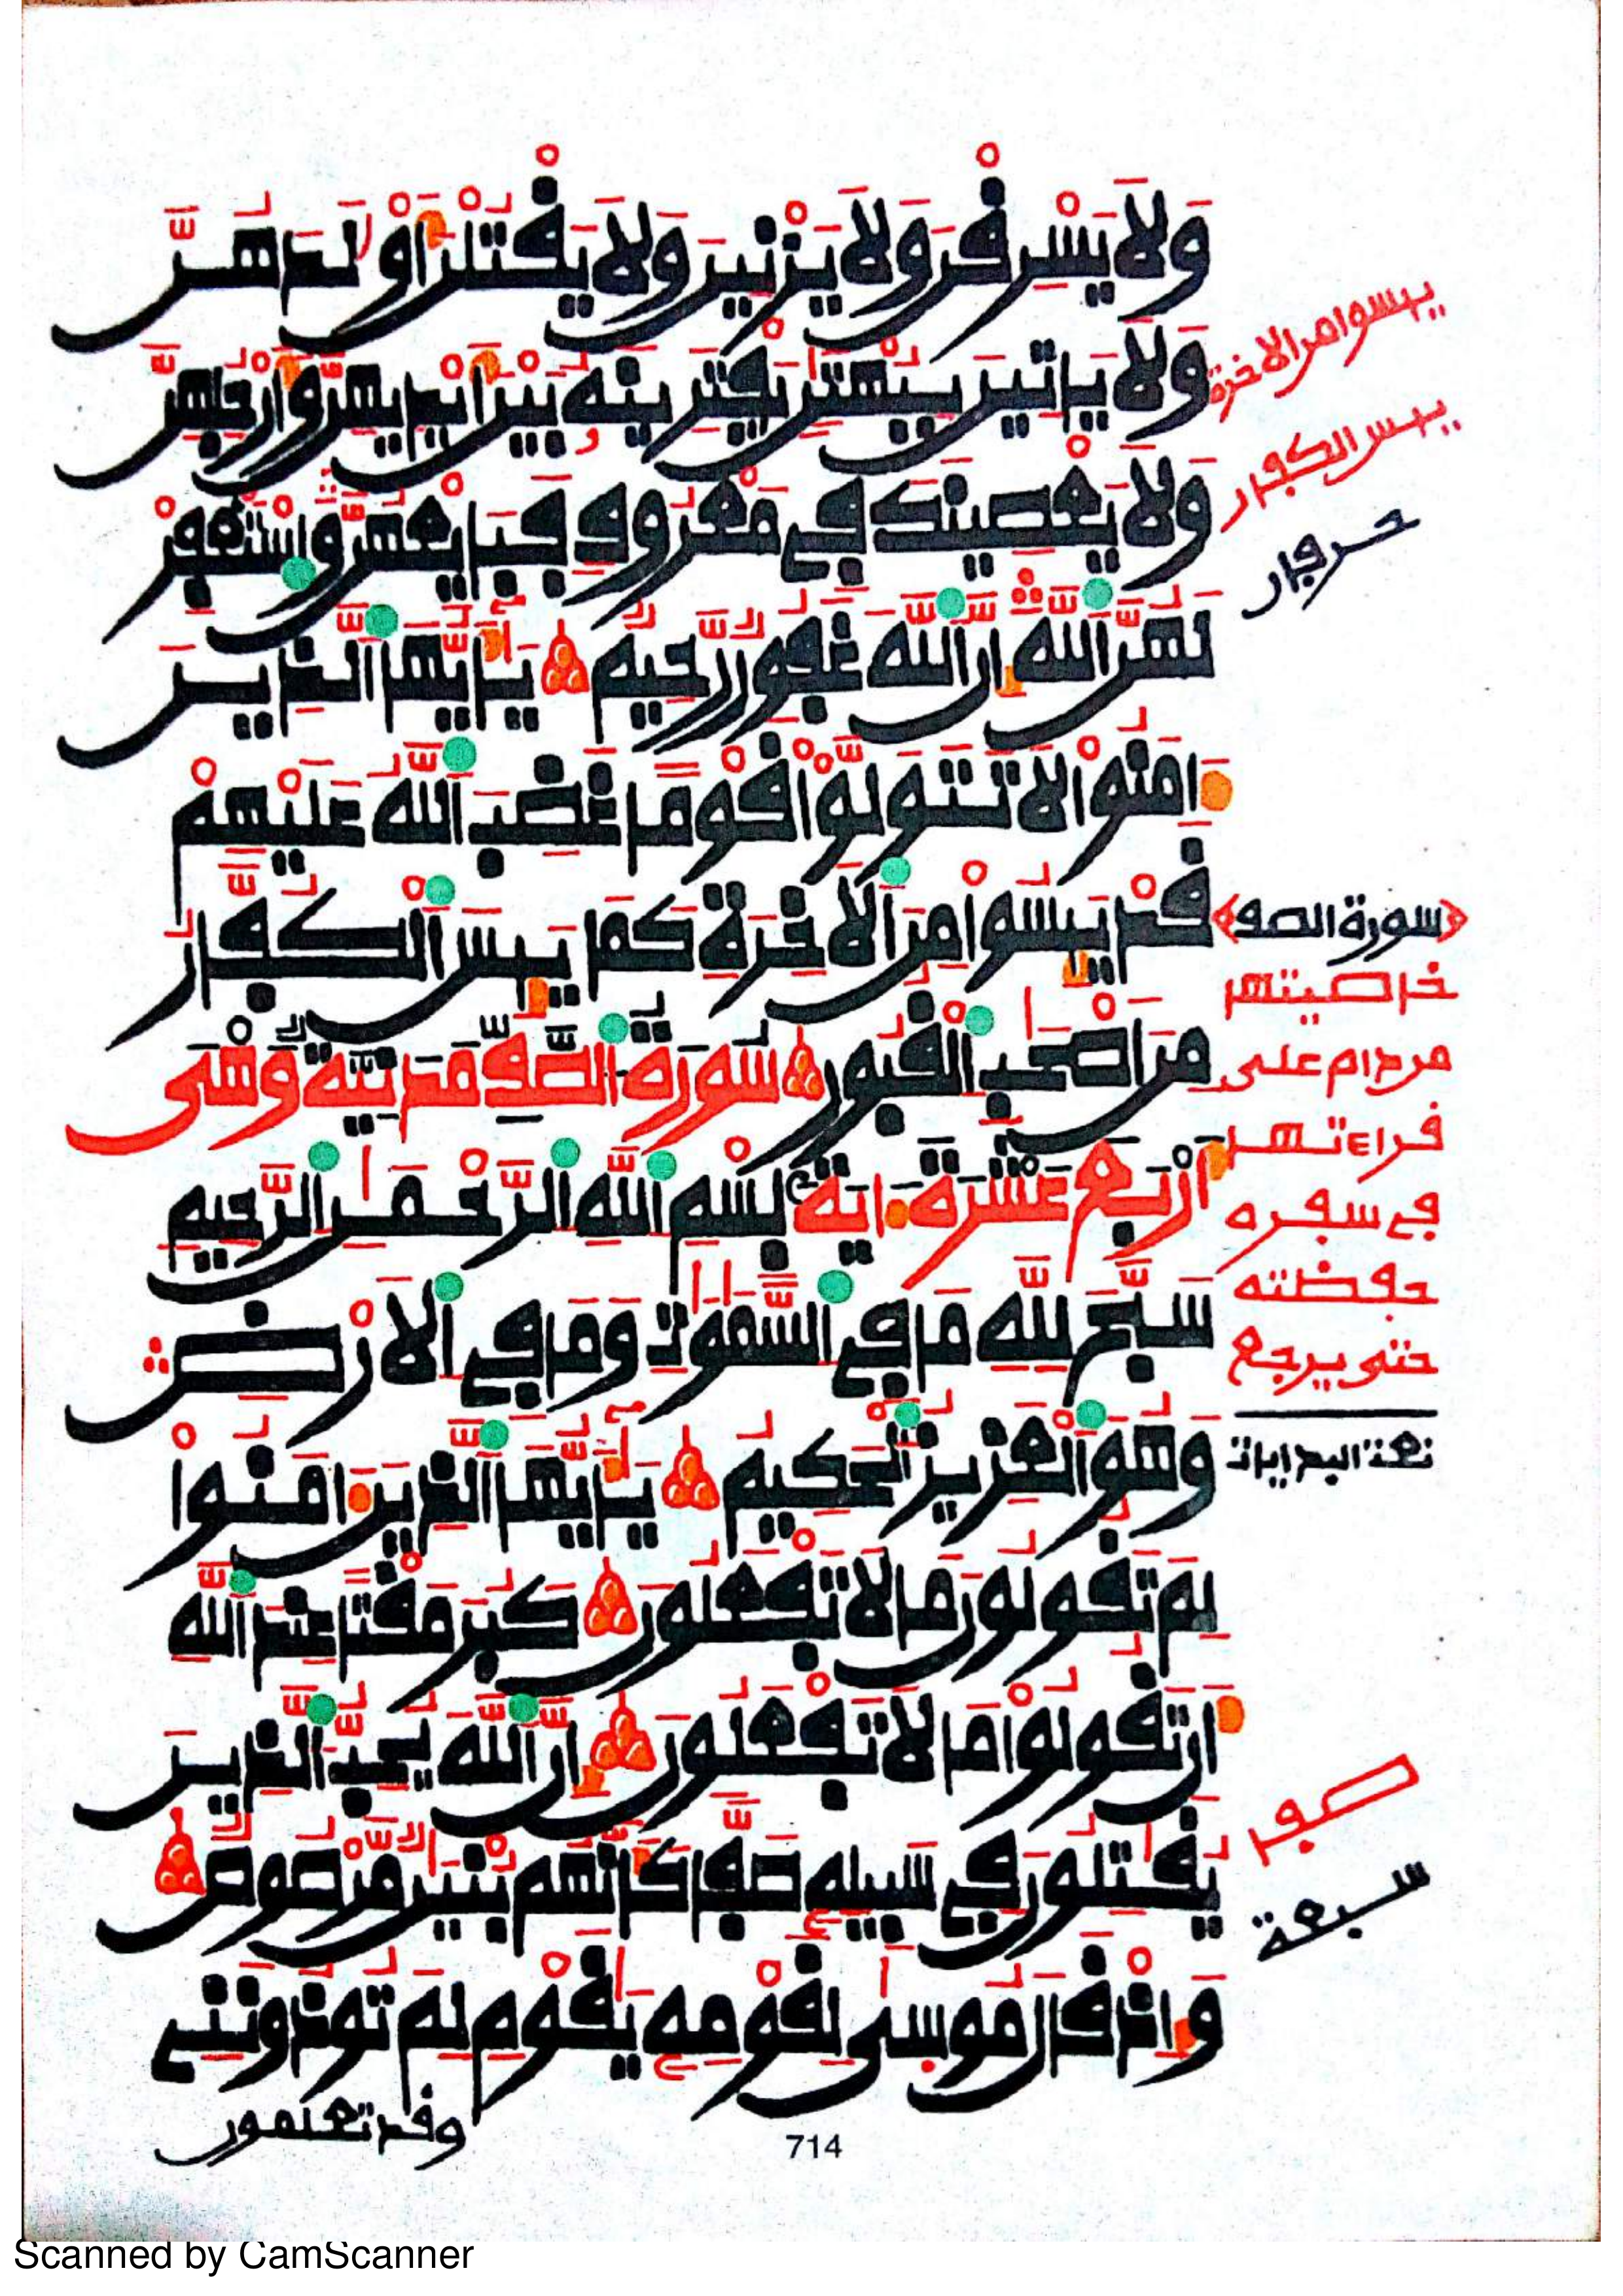 وَلَا يَسْرِقْنَ وَلَا يَزْنِينَ وَلَا يَقْتُلْنَ أَوْلَٰدَهُنَّ
وَلَا يَأْتِينَ بِبُهْتَٰنٍ يَفْتَرِينَهُۥ بَيْنَ أَيْدِيهِنَّ وَأَرْجُلِهِنَّ
وَلَا يَعْصِينَكَ فِے مَعْرُوفٍ فَبَايِعْهُنَّ وَاسْتَغْفِرْ
لَهُنَّ اَللَّهَ إِنَّ اَللَّهَ غَفُورٌ رَّحِيمٌ يَٰأَيُّهَا اَلذِينَ
ءَامَنُواْ لَا تَتَوَلَّوْاْ قَوْماً غَضِبَ اَللَّهُ عَلَيْهِمْ
قَدْ يَئِسُواْ مِنَ اَلَاخِرَةِ كَمَا يَئِسَ اَلْكُفَّارُ
مِنْ أَصْحَٰبِ اِلْقُبُورِ سُورَةُ الصَّفِّ مَدَنِيَّةٌ وَهْىَ
أَرْبَعَ عَشْرَةَ ءَايَةً بِسْمِ اِللَّهِ اِلرَّحْمَٰنِ اِلرَّحِيمِ
سَبَّحَ لِلهِ مَا فِے اِلسَّمَٰوَٰتِ وَمَا فِے اِلَارْضِ
وَهُوَ اَلْعَزِيزُ اُلْحَكِيمُ يَٰأَيُّهَا اَلذِينَ ءَامَنُواْ
لِمَ تَقُولُونَ مَا لَا تَفْعَلُونَ كَبُرَ مَقْتاً عِندَ اَللَّهِ
أَن تَقُولُواْ مَا لَا تَفْعَلُونَ إِنَّ اَللَّهَ يُحِبُّ اُلذِينَ
يُقَٰتِلُونَ فِے سَبِيلِهِۦ صَفّاً كَأَنَّهُم بُنْيَٰنٌ مَّرْصُوصٌ
وَإِذْ قَالَ مُوسَىٰ لِقَوْمِهِۦ يَٰقَوْمِ لِمَ تُوذُونَنِے
وقد تعلمون
يئسوا من الاخرة
يئس الكفار
حرفان
سورة الصف
خاصيتها
من دام على
قراءتها
في سفره
حفظته
حتى يرجع
صفا
سبعة
714
Scanned by CamScanner